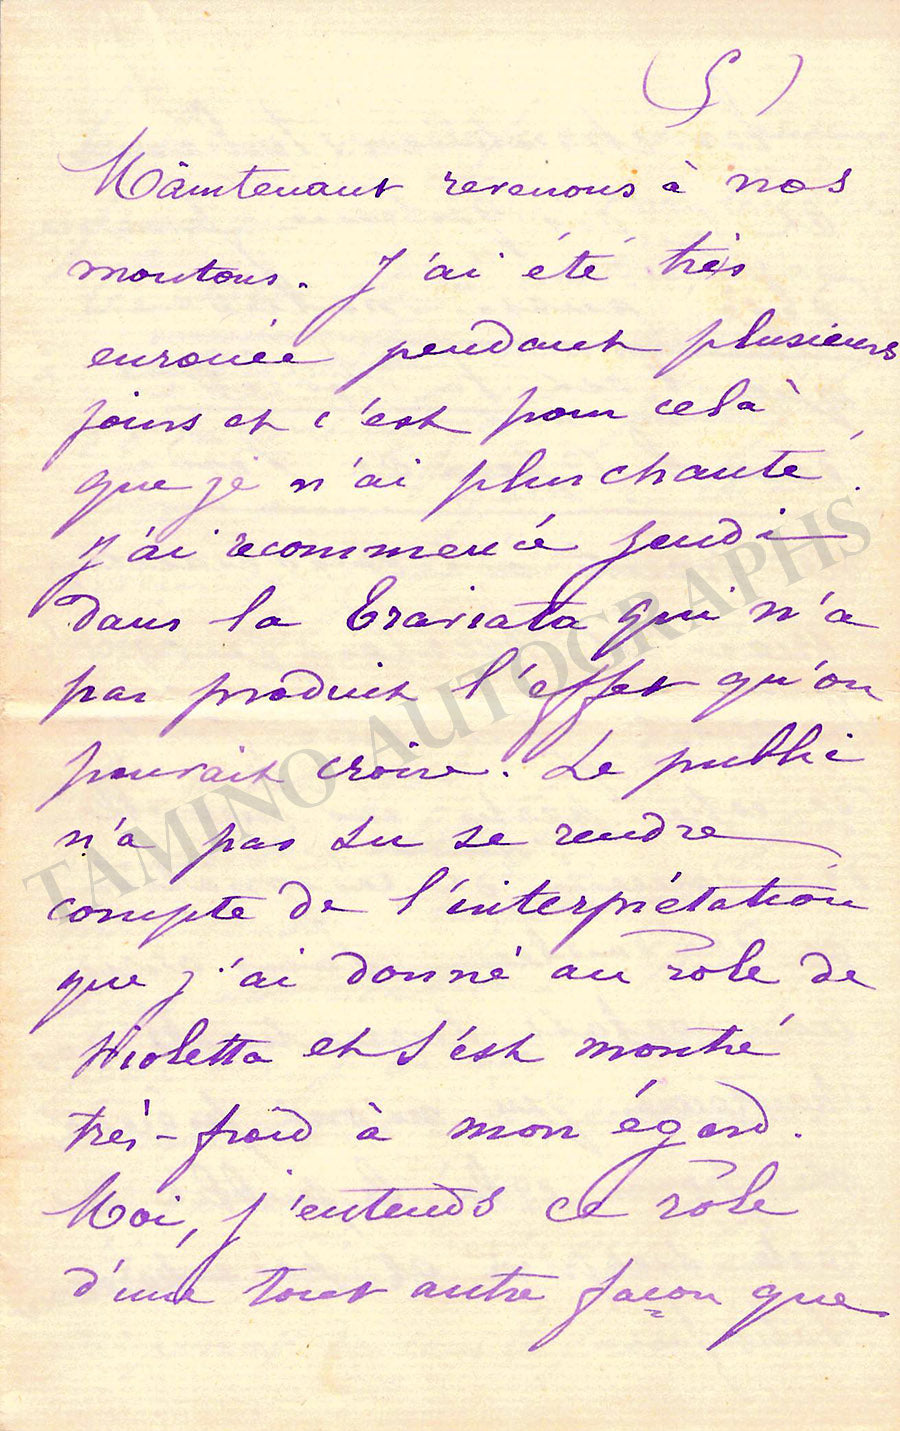 (5)
Maintenant revenons à nos
moutons. J'ai été très
enrouée pendant plusieurs
jours et c'est pour celà
que je n'ai plus chanté.
J'ai recommencé Jeudi
dans la Traviata qui n'a
pas produit l'effet qu'on
pouvait croire. Le public
n'a pas su se rendre
compte de l'interprétation
que j'ai donné au rôle de
Violetta et s'est montré
très-froid à mon égard.
Moi, j'entends ce rôle
d'une tout autre façon que
TAMINO AUTOGRAPHS